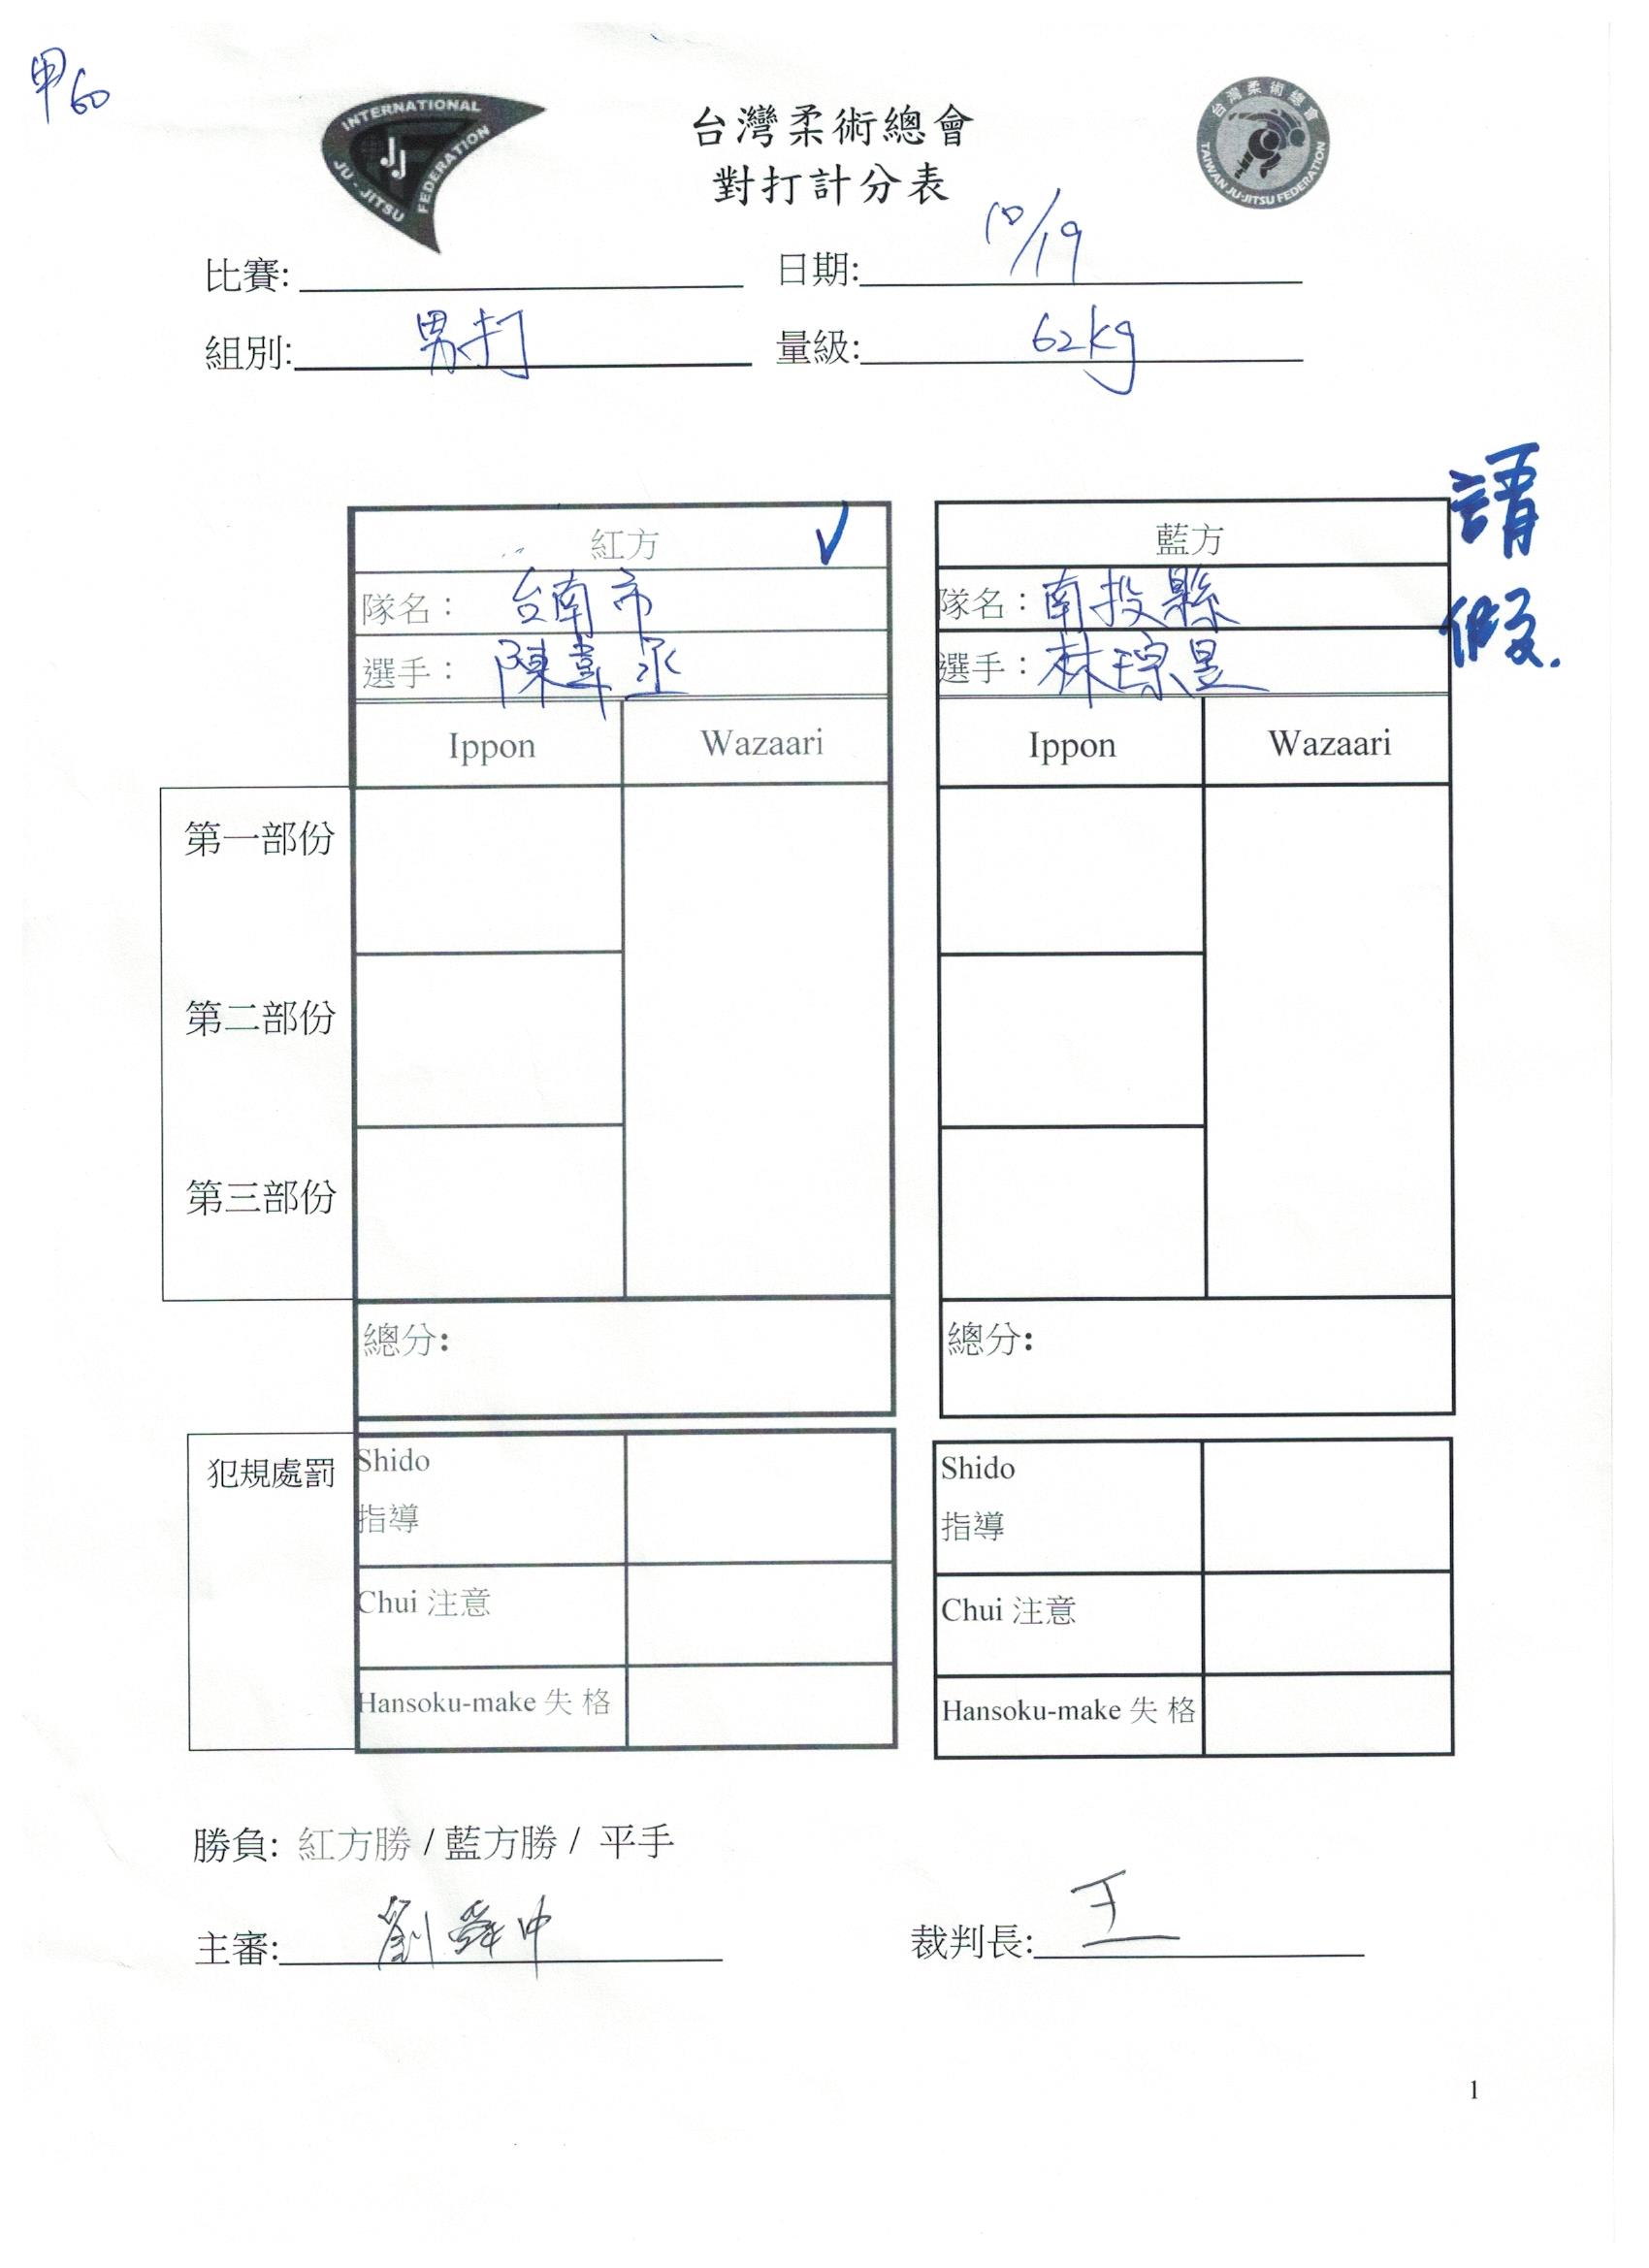 甲60
INTERNATIONAL
JJ
JU-JITSU FEDERATION
台灣柔術總會
對打計分表
台灣柔術總會
TAIWAN JU-JITSU FEDERATION
比賽: 日期: 10/19
組別: 男打 量級: 62kg
請假.
紅方 ✓ 藍方
隊名: 台南市 隊名: 南投縣
選手: 陳韋丞 選手: 林琮昱
Ippon Wazaari Ippon Wazaari
第一部份
第二部份
第三部份
總分: 總分:
犯規處罰 Shido Shido
指導 指導
Chui 注意 Chui 注意
Hansoku-make 失 格 Hansoku-make 失 格
勝負: 紅方勝 / 藍方勝 / 平手
主審: 劉舜中 裁判長: 王
1